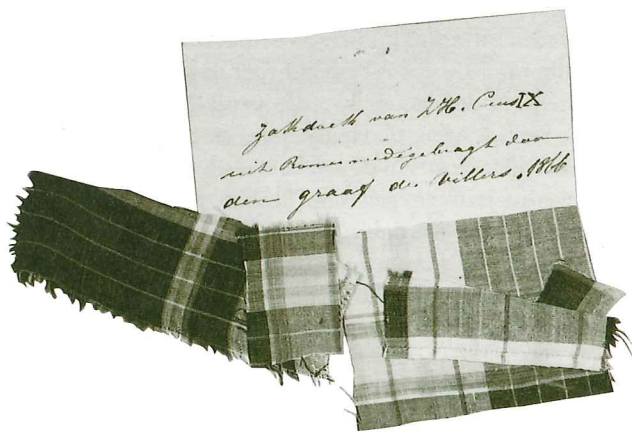 Zakdoek van Z.H. Pius IX
uit Rome medegebragt door
den graaf de Villers. 1866